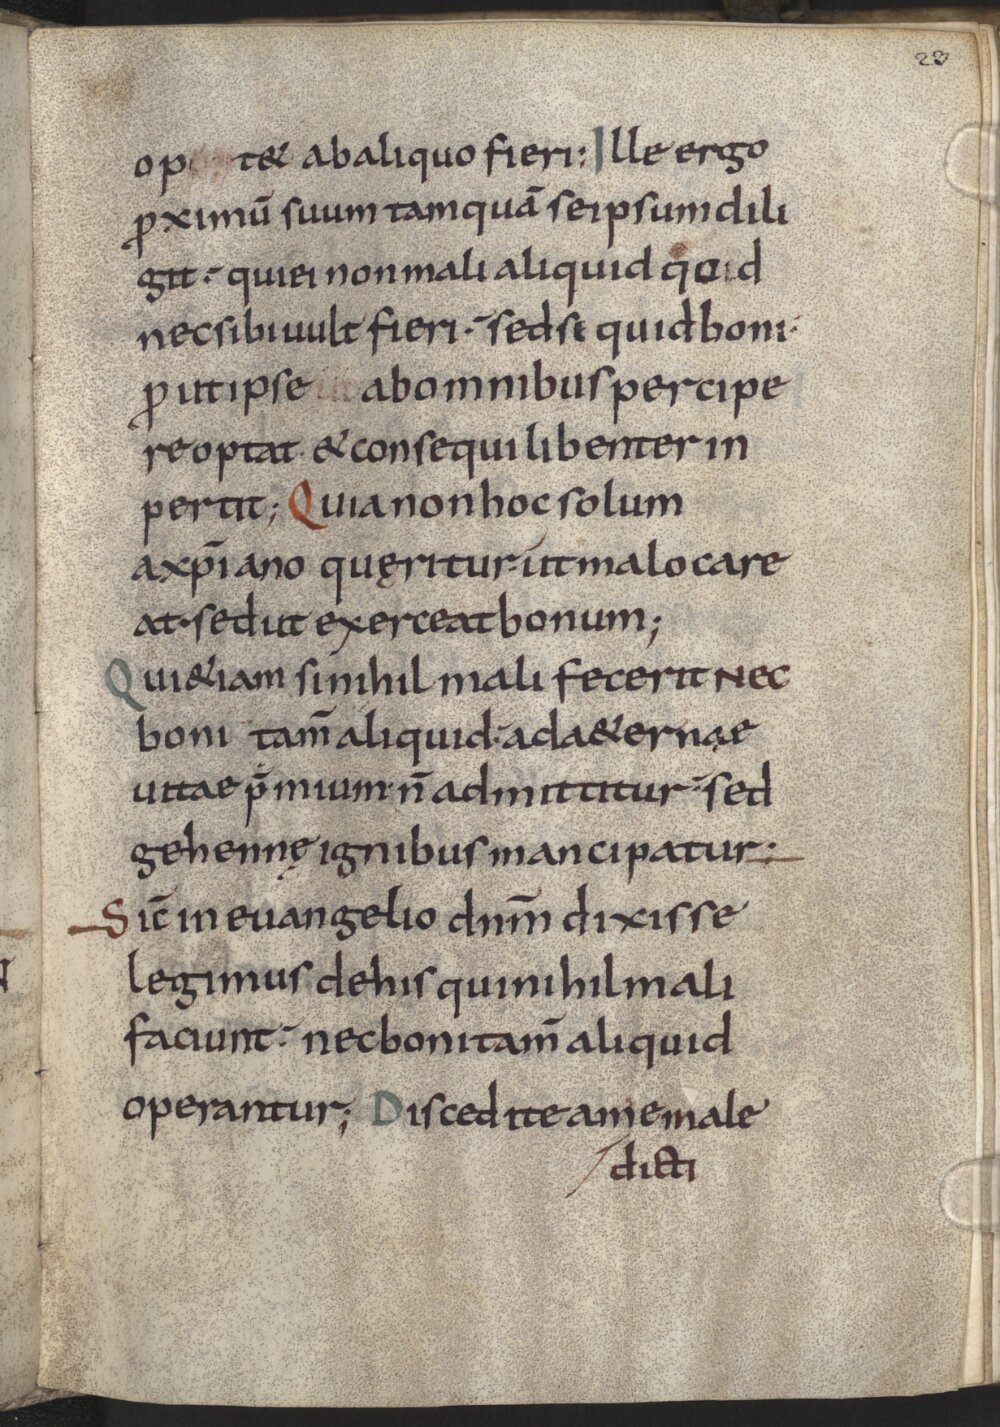 23
op t& abaliquo fieri: Ille ergo
p̱ximū suum tamquā seipsum dili
git· quiei nonmali aliquid qđ id
necsibi uult fieri· sedse quidboni·
p̱ ut ipse abomnibus percipe
reoptat· & consequi libenter in
pertit; Quia non hoc solum
axp̄iano quęritur· ut malo care
at· sed ut exerceat bonum;
Qui&iam sinihil mali fecerit nec
boni tam̄ aliquid· ada&ernae
uitae p̄mium n̄ admittitur· sed
gehennę ignibus mancipatur;
Sic̄ in euangelio dnm̄ dixisse
legimus dehis quinihil mali
faciunt· necboni tam̄ aliquid
operantur; Discedite ame male
dicti